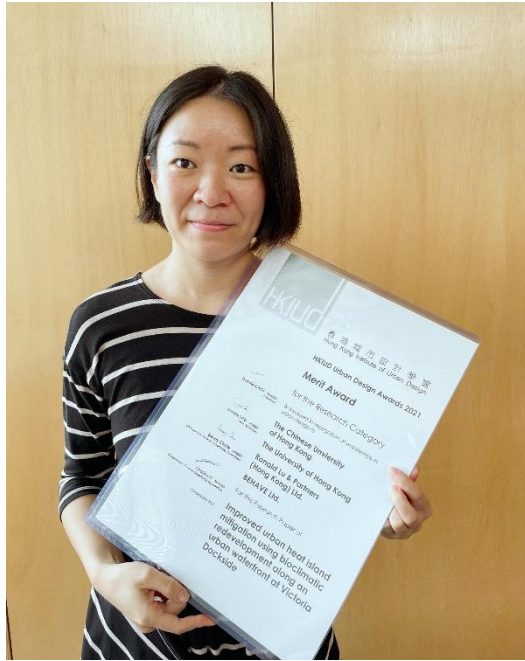 HKIUD
香港城市設計學會
Hong Kong Institute of Urban Design
HKIUD Urban Design Awards 2021
Merit Award
for the Research Category
is accorded in recognition of excellence in
urban design to
The Chinese University
of Hong Kong
The University of Hong Kong
Ronald Lu & Partners
(Hong Kong) Ltd.
BEHAVE Ltd.
For the Research Paper of
Improved urban heat island
mitigation using bioclimatic
redevelopment along an
urban waterfront at Victoria
Dockside